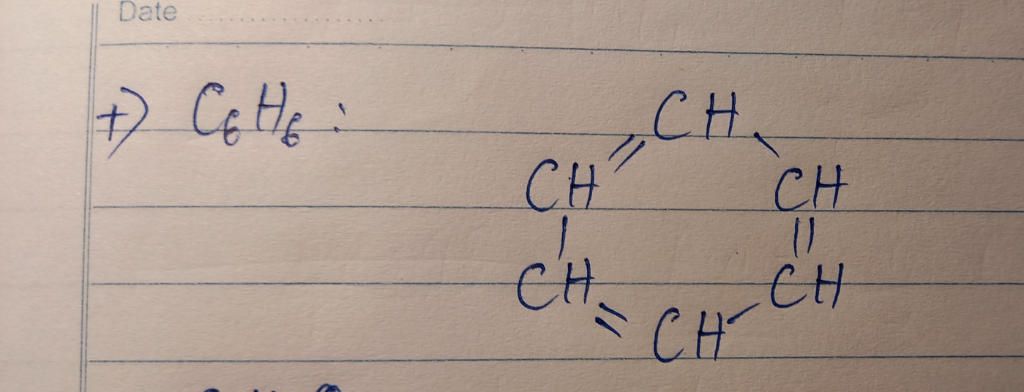 Date
+) C₆H₆:
CH
CH CH
CH CH
CH